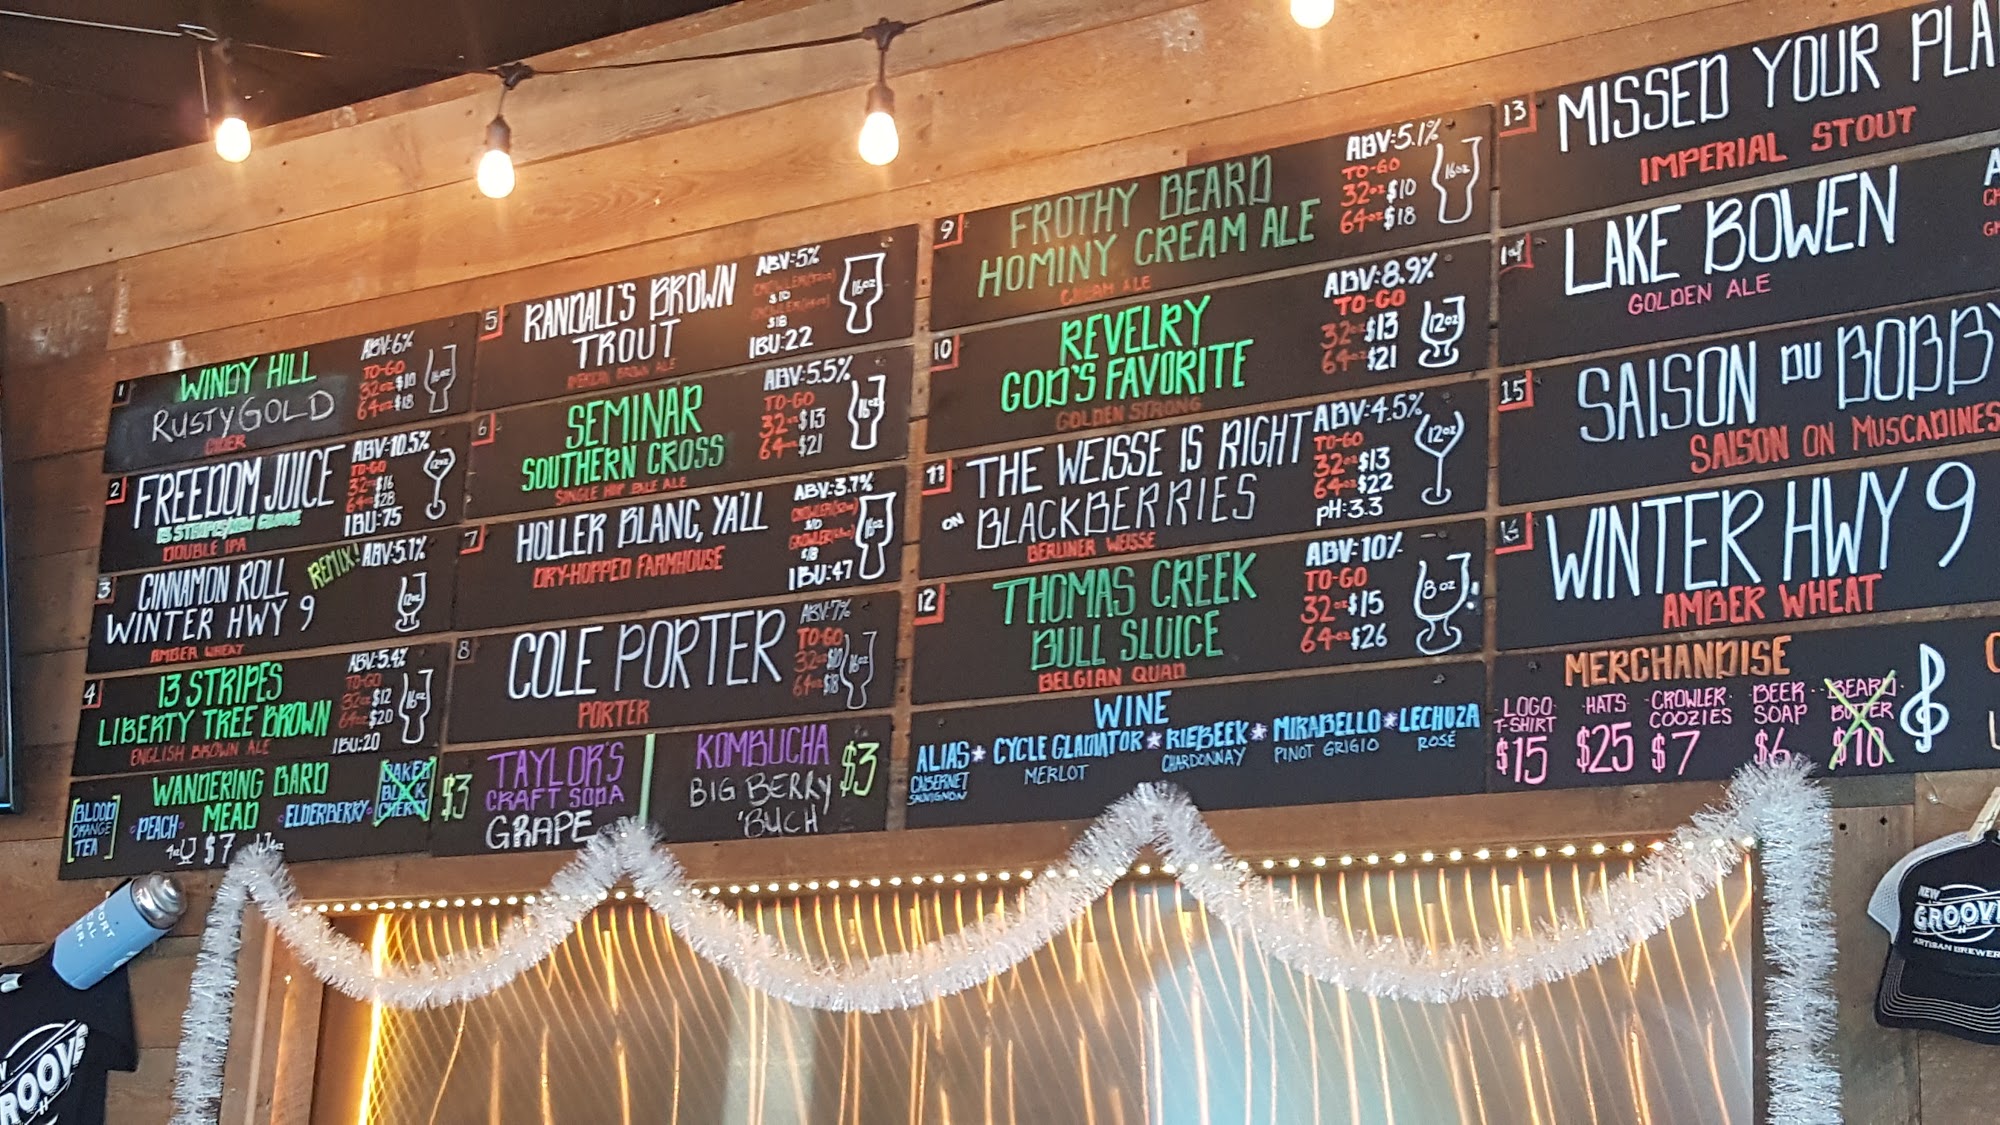 1
WINDY HILL
RUSTY GOLD
CIDER
ABV:6%
TO-GO
32oz $10
64oz $18
16oz
2
FREEDOM JUICE
13 STRIPES/NEW GROOVE
DOUBLE IPA
ABV:10.5%
TO-GO
32oz $16
64oz $28
IBU:75
12oz
3
CINNAMON ROLL
WINTER HWY 9
AMBER WHEAT
REMIX!
ABV:5.1%
12oz
4
13 STRIPES
LIBERTY TREE BROWN
ENGLISH BROWN ALE
ABV:5.4%
TO-GO
32oz $12
64oz $20
IBU:20
16oz
WANDERING BARD
MEAD
[BLOOD
ORANGE
TEA]
•PEACH•
•ELDERBERRY•
BAKED
BLACK
CHERRY
4oz $7
5
RANDALL'S BROWN
TROUT
AMERICAN BROWN ALE
ABV:5%
CROWLER(32oz)
$10
GROWLER(64oz)
$18
IBU:22
16oz
6
SEMINAR
SOUTHERN CROSS
SINGLE HOP PALE ALE
ABV:5.5%
TO-GO
32oz $13
64oz $21
16oz
7
HOLLER BLANC, YA'LL
DRY-HOPPED FARMHOUSE
ABV:3.7%
CROWLER(32oz)
$10
GROWLER(64oz)
$18
IBU:47
16oz
8
COLE PORTER
PORTER
ABV:7%
TO-GO
32oz $10
64oz $18
16oz
$3
TAYLOR'S
CRAFT SODA
GRAPE
KOMBUCHA
BIG BERRY
'BUCH'
$3
9
FROTHY BEARD
HOMINY CREAM ALE
CREAM ALE
ABV:5.1%
TO-GO
32oz $10
64oz $18
16oz
10
REVELRY
GOD'S FAVORITE
GOLDEN STRONG
ABV:8.9%
TO-GO
32oz $13
64oz $21
12oz
11
THE WEISSE IS RIGHT
ON BLACKBERRIES
BERLINER WEISSE
ABV:4.5%
TO-GO
32oz $13
64oz $22
pH:3.3
12oz
12
THOMAS CREEK
BULL SLUICE
BELGIAN QUAD
ABV:10%
TO-GO
32oz $15
64oz $26
8oz
WINE
ALIAS * CYCLE GLADIATOR * RIEBEEK * MIRABELLO * LECHUZA
CABERNET
SAUVIGNON
MERLOT
CHARDONNAY
PINOT GRIGIO
ROSÉ
13
MISSED YOUR PLA
IMPERIAL STOUT
14
LAKE BOWEN
GOLDEN ALE
15
SAISON DU BOBBY
SAISON ON MUSCADINES
16
WINTER HWY 9
AMBER WHEAT
MERCHANDISE
LOGO
T-SHIRT
$15
HATS
$25
CROWLER
COOZIES
$7
BEER
SOAP
$6
BEARD
BUTTER
$10
NEW
GROOVE
ARTISAN BREWER
ROOVE